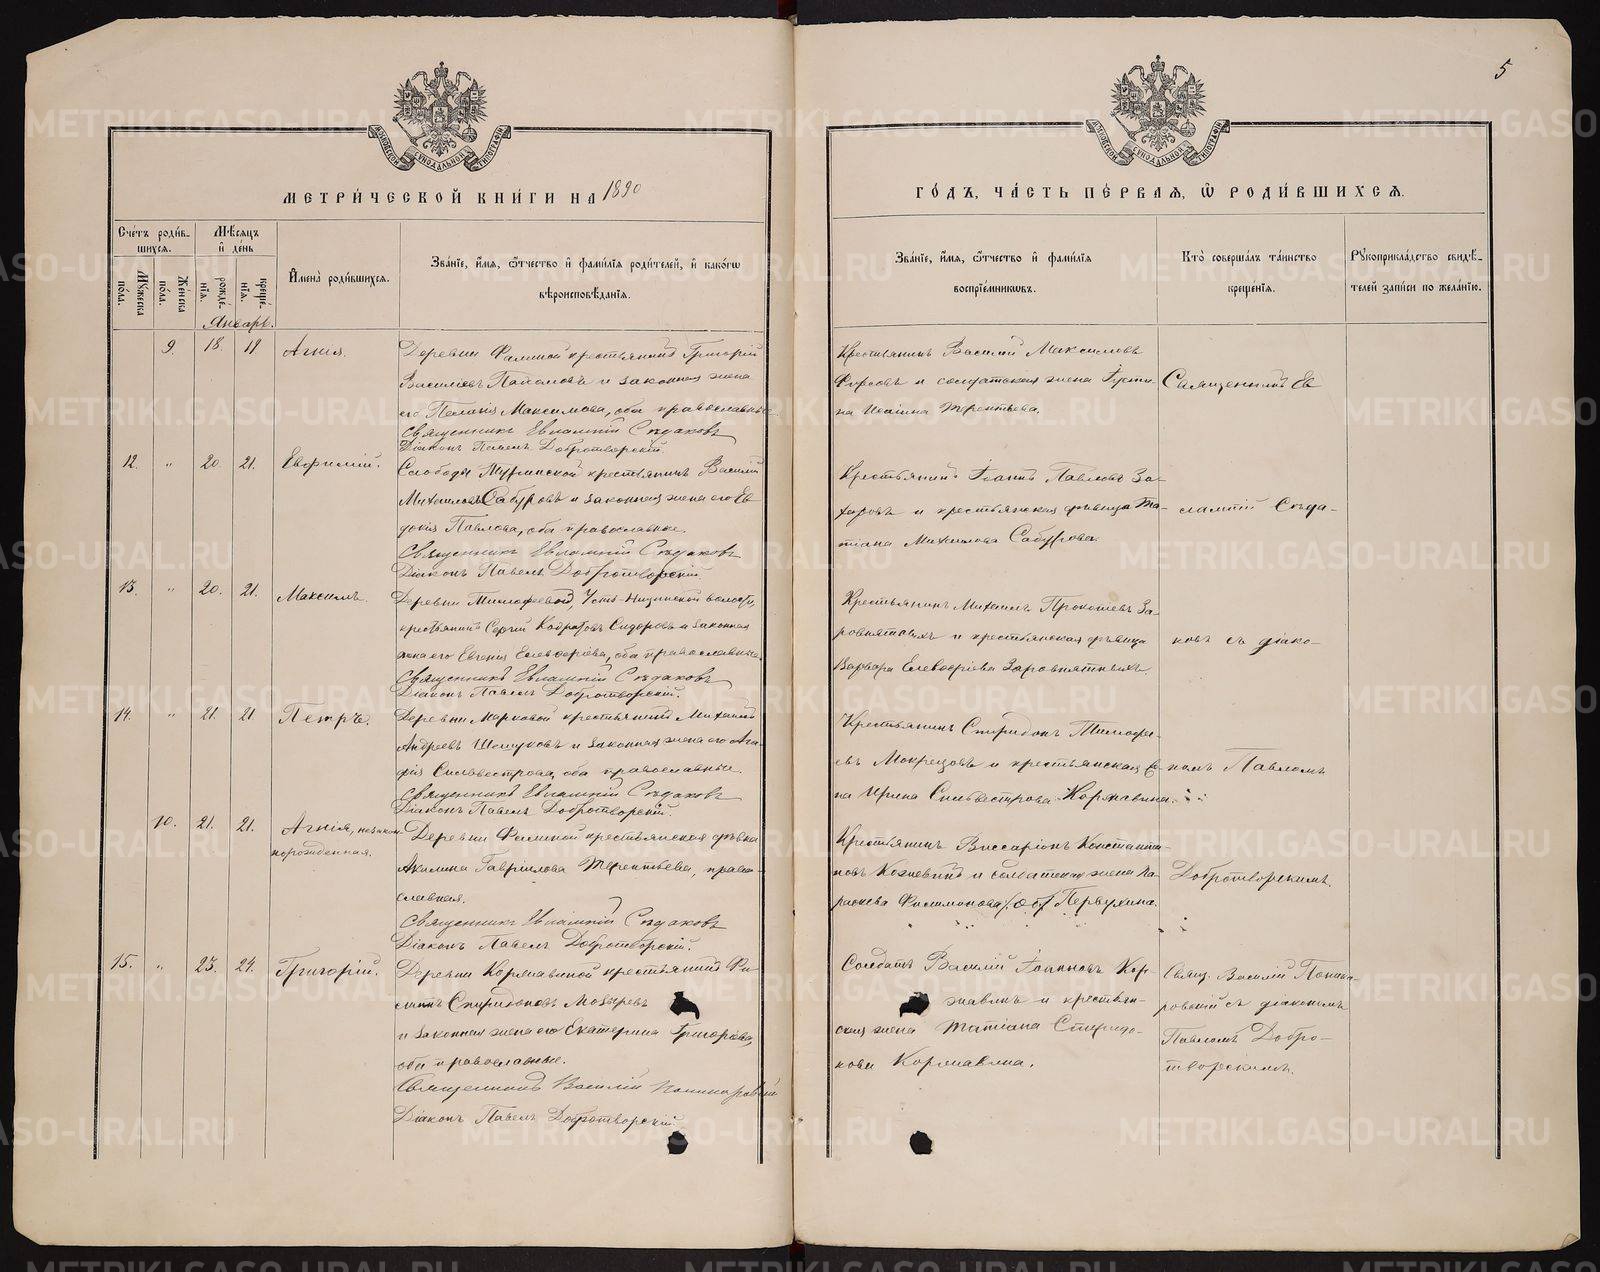 5
МОСКОВСКОЙ СѴНОДАЛЬНОЙ ТИПОГРАФІИ
МОСКОВСКОЙ СѴНОДАЛЬНОЙ ТИПОГРАФІИ
МЕТРИ́ЧЕСКОЙ КНИ́ГИ НА 1890
ГО́ДЪ, ЧА́СТЬ ПЕ́РВАЯ, Ѡ РОДИ́ВШИХСЯ.
Сче́тъ роди́в-
шихся.
Му́жеска по́ла.
Же́нска по́ла.
Мѣ́сяцъ
и҆ де́нь
рожде́нїя.
креще́нїя.
И҆мена̀ роди́вшихся.
Зва́нїе, и҆́мя, ѻ҆́тчество и҆ фами́лїя роди́телей, и҆ како́гѡ
вѣроисповѣ́данїя.
Зва́нїе, и҆́мя, ѻ҆́тчество и҆ фами́лїя
воспрїе́мникѡвъ.
Кто̀ соверша́лъ та́инство
креще́нїя.
Рꙋкоприкла́дство свидѣ́-
телей за́писи по жела́нїю.
Январь.
9. 18. 19 Агнія.
Деревни Фоминой крестьянинъ Григорій
Василіевъ и законная жена
его Пелагія Максимова, оба православные
Священникъ Евлампій
Діаконъ Павелъ Добротворскій.
Крестьянинъ Василій Максимовъ
Фирсовъ и солдатская жена Іусти-
на Терентьева.
Священникъ Ев
12. " 20. 21. Евфимій.
Слободы крестьянинъ Василій
Михаиловъ Сабуровъ и законная жена его Ев
докія Павлова, оба православные.
Священникъ Евлампій
Діаконъ Павелъ Добротворскій
Крестьянинъ Іоаннъ Павловъ За-
харовъ и крестьянская дѣвица Та-
тіана Михаилова Сабурова.
лампій
13. " 20. 21. Максимъ.
Деревни Тимофеевой, Усть-Ницинской волости,
крестьянинъ Сергій Сидоровъ и законная
жена его Евгенія Елевферіева, оба православные.
Священникъ Евлампій
Діаконъ Павелъ Добротворскій.
Крестьянинъ Михаилъ Прокопіевъ За-
ровнятныхъ и крестьянская дѣвица
Варвара Елевферіева Заровнятныхъ.
ковъ съ діако-
14. " 21. 21. Петръ.
Деревни Марковой крестьянинъ Михаилъ
Андреевъ и законная жена его Ага-
фія Сильвестрова, оба православные.
Священникъ Евлампій
Діаконъ Павелъ Добротворскій.
Крестьянинъ Спиридонъ Тимофе-
евъ Мокрецовъ и крестьянская
на Ирина Сильвестрова Кормавина.
номъ Павломъ
10. 21. 21. Агнія, незакон-
норожденная.
Деревни Фоминой крестьянская дѣвка
Акилина Гавріилова Терентьева, право-
славная.
Священникъ Евлампій
Діаконъ Павелъ Добротворскій.
Крестьянинъ Виссаріонъ Константи-
новъ и солдатская жена Па-
раскева Филимонова Первухина.
Добротворскимъ.
15. " 23. 24. Григорій.
Деревни Кормавской крестьянинъ Фи-
липъ Спиридоновъ Мозыревъ
и законная жена его Екатерина Григорьева,
оба православные.
Священникъ Василій
Діаконъ Павелъ Добротворскій
Солдатъ Василій Іоанновъ Кор-
мавинъ и крестьян-
ская жена Татіана Спиридо-
нова Кормавина.
Свящ. Василій
съ діакономъ
Павломъ Добро-
творскимъ.
METRIKI.GASO-URAL.RU